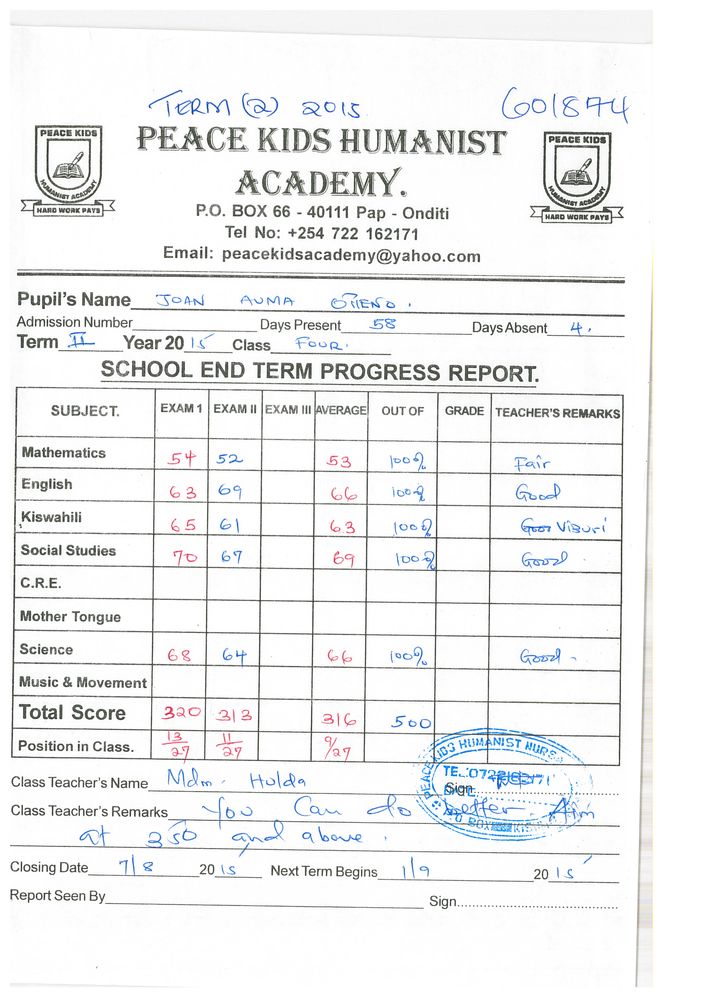 TERM (2) 2015 601874
PEACE KIDS HUMANIST ACADEMY HARD WORK PAYS
PEACE KIDS HUMANIST
ACADEMY.
PEACE KIDS HUMANIST ACADEMY HARD WORK PAYS
P.O. BOX 66 - 40111 Pap - Onditi
Tel No: +254 722 162171
Email: peacekidsacademy@yahoo.com
Pupil's Name JOAN AUMA OTIENO.
Admission Number Days Present 58 Days Absent 4.
Term II Year 2015 Class FOUR.
SCHOOL END TERM PROGRESS REPORT.
SUBJECT. EXAM 1 EXAM II EXAM III AVERAGE OUT OF GRADE TEACHER'S REMARKS
Mathematics 54 52 53 100% Fair
English 63 69 66 100% Good
Kiswahili 65 61 63 100% Viburi
Social Studies 70 67 69 100% Good
C.R.E.
Mother Tongue
Science 68 64 66 100% Good -
Music & Movement
Total Score 320 313 316 500
Position in Class. 13/27 11/27 9/27
PEACE KIDS HUMANIST NURS
Class Teacher's Name Mdm. Hulda Sign
Class Teacher's Remarks You Can do better. Aim
at 350 and above.
Closing Date 7/8 2015 Next Term Begins 1/9 2015
Report Seen By Sign